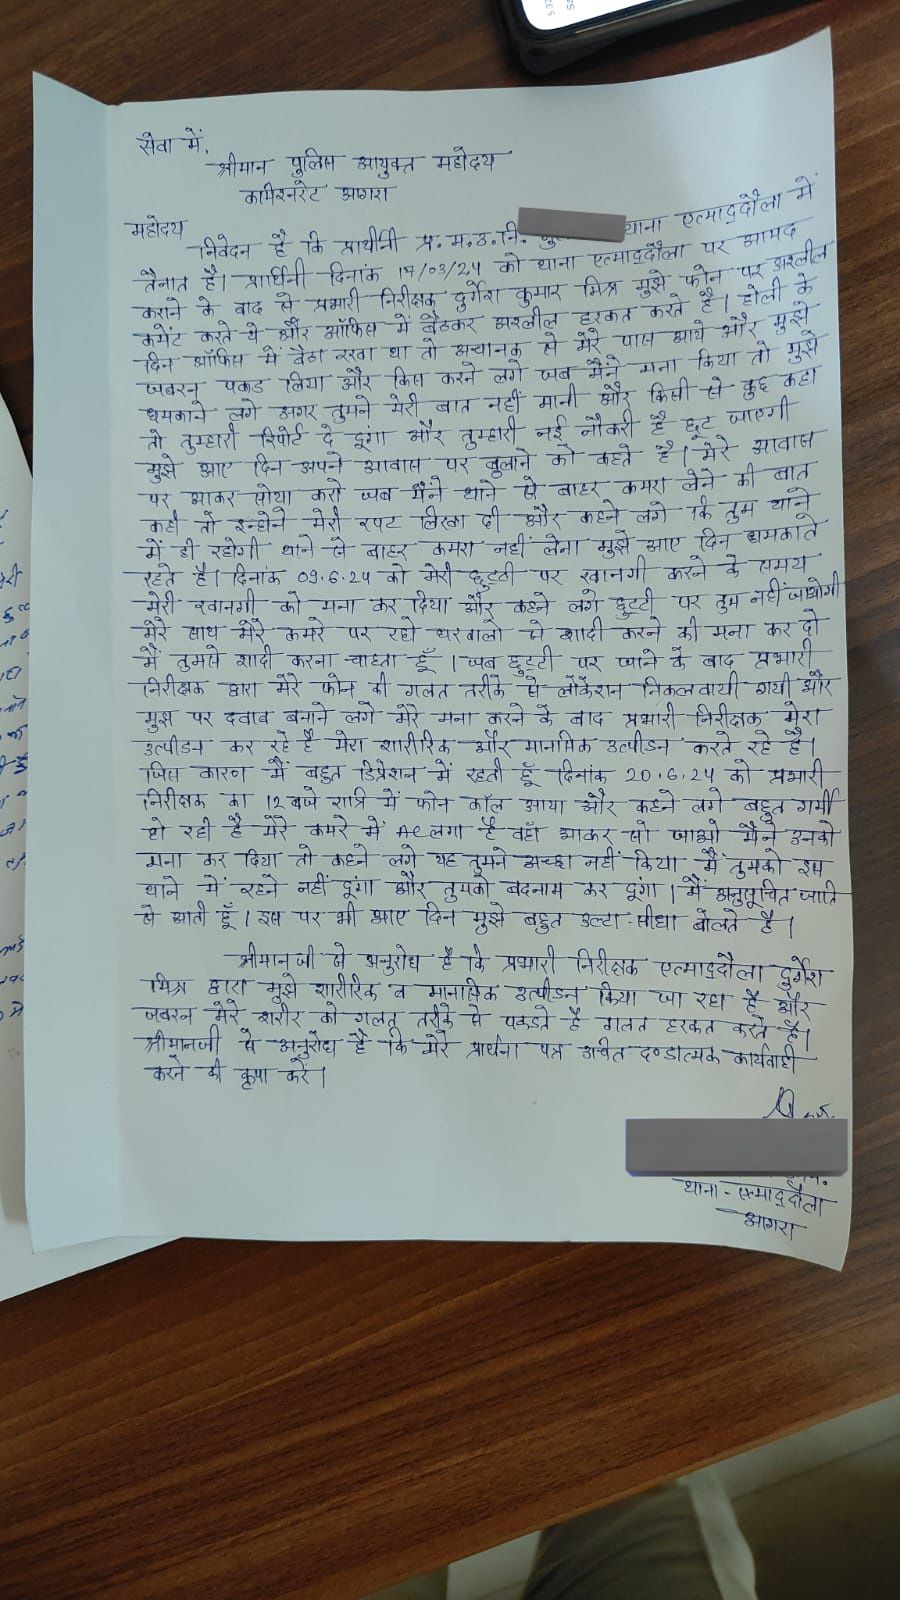 सेवा में,
श्रीमान पुलिस आयुक्त महोदय
कमिश्नरेट आगरा
महोदय
निवेदन है कि प्रार्थीनी प्र. म. उ. नि. थाना एत्माद्दौला में
तैनात है। प्रार्थिनी दिनांक 17/03/24 को थाना एत्माद्दौला पर आमद
कराने के बाद से प्रभारी निरीक्षक दुर्गेश कुमार मिश्र मुझे फोन पर अश्लील
कमेंट करते थे और ऑफिस में बैठकर अश्लील हरकत करते है। होली के
दिन ऑफिस में बैठा रखा था तो अचानक से मेरे पास आये और मुझे
जबरन पकड लिया और किस करने लगे जब मैंने मना किया तो मुझे
धमकाने लगे अगर तुमने मेरी बात नहीं मानी और किसी से कुछ कहा
तो तुम्हारी रिपोर्ट दे दूंगा और तुम्हारी नई नौकरी है छूट जाएगी
मुझे आए दिन अपने आवास पर बुलाने को कहते है। मेरे आवास
पर आकर सोया करो जब मैंने थाने से बाहर कमरा लेने की बात
कही तो इन्होने मेरी रपट लिखा दी और कहने लगे कि तुम थाने
में ही रहोगी थाने से बाहर कमरा नहीं लेना मुझे आए दिन धमकाते
रहते है। दिनांक 09.6.24 को मेरी छुट्टी पर रवानगी करने के समय
मेरी रवानगी को मना कर दिया और कहने लगे छुट्टी पर तुम नहीं जाओगी
मेरे साथ मेरे कमरे पर रहो घरवालो से शादी करने की मना कर दो
मैं तुमसे शादी करना चाहता हूँ । जब छुट्टी पर जाने के बाद प्रभारी
निरीक्षक द्वारा मेरे फोन की गलत तरीके से लोकेशन निकलवायी गयी और
मुझ पर दवाब बनाने लगे मेरे मना करने के बाद प्रभारी निरीक्षक मेरा
उत्पीडन कर रहे है मेरा शारीरिक और मानसिक उत्पीडन करते रहे है।
जिस कारण मैं बहुत डिप्रेशन में रहती हूँ दिनांक 20.6.24 को प्रभारी
निरीक्षक का 12 बजे रात्रि में फोन कॉल आया और कहने लगे बहुत गर्मी
हो रही है मेरे कमरे में AC लगा है वहाँ आकर सो जाओ मैंने उनको
मना कर दिया तो कहने लगे यह तुमने अच्छा नहीं किया मैं तुमको इस
थाने में रहने नहीं दूंगा और तुमको बदनाम कर दूंगा । मैं अनुसूचित जाति
से आती हूँ । इस पर भी आए दिन मुझे बहुत उल्टा-सीधा बोलते है।
श्रीमानजी से अनुरोध है कि प्रभारी निरीक्षक एत्माद्दौला दुर्गेश
मिश्र द्वारा मुझे शारीरिक व मानसिक उत्पीडन किया जा रहा है और
जबरन मेरे शरीर को गलत तरीके से पकडते है गलत हरकत करते है।
श्रीमानजी से अनुरोध है कि मेरे प्रार्थना पत्र उचित दण्डात्मक कार्यवाही
करने की कृपा करें।
थाना - एत्माद्दौला
आगरा